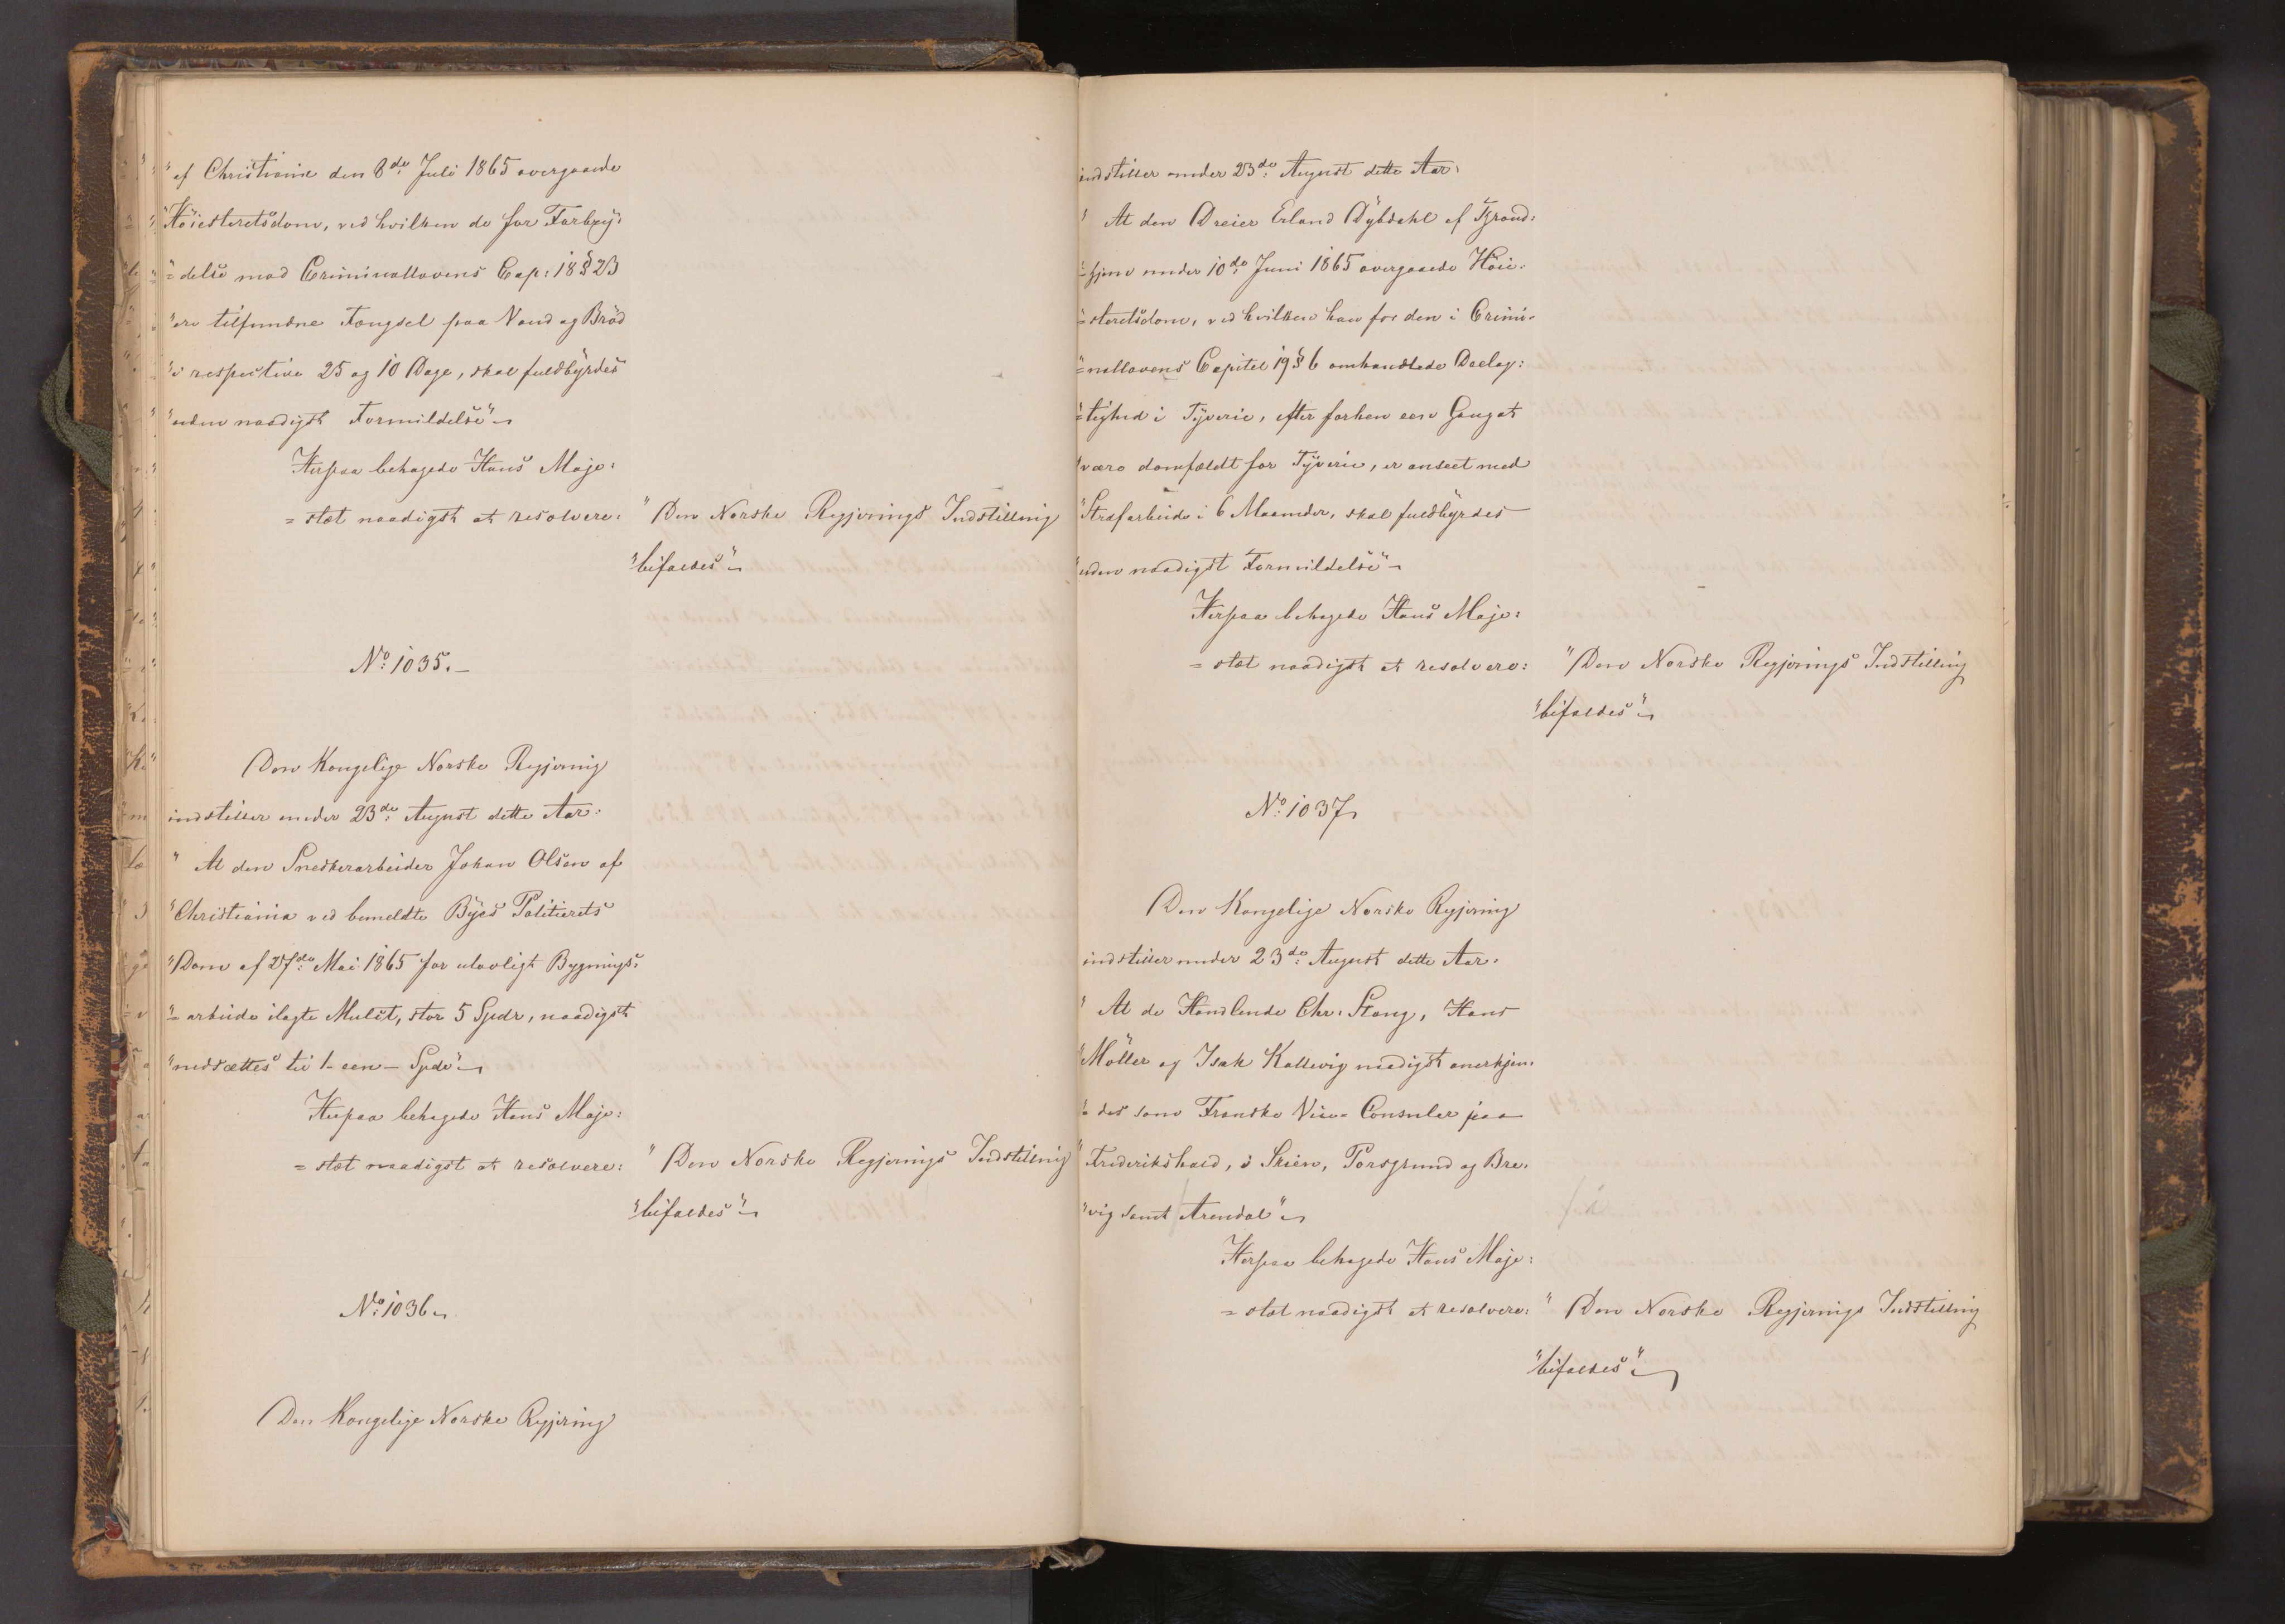 "af Christiania den 8de Juli 1865 overgaaede
"Høiesteretsdom, ved hvilken de for Forbry:
"=delse mod Criminallovens Cap: 18 § 23
"ere tilfundne Fængsel paa Vand og Brød
"i respective 25 og 10 Dage, skal fuldbyrdes
"uden naadigst Formildelse"
Herpaa behagede Hans Maje:
=stæt naadigst at resolvere:
"Den Norske Regjerings Indstilling
"bifaldes"
No: 1035.
Den Kongelige Norske Regjering
indstiller under 23de August dette Aar:
"At den Snedkerarbeider Johan Olsen af
"Christiania ved bemeldte Byes Politirets
"Dom af 27de Mai 1865 for ulovligt Bygnings:
"=arbeide ilagte Mulct, stor 5 Spdr, naadigst
"nedsættes til 1 - een - Spdr"
Herpaa behagede Hans Maje:
=stæt naadigst at resolvere:
"Den Norske Regjerings Indstilling
"bifaldes"
No: 1036
Den Kongelige Norske Regjering
indstiller under 23de August dette Aar:
"At den Dreier Erland Dybdahl af Trond:
"=hjem under 10de Juni 1865 overgaaede Høie:
"=steretsdom, ved hvilken han for den i Crimi=
"=nallovens Capitel 19 § 6 omhandlede Deelag:
"=tighed i Tyverie, efter forhen een Gang at
"være domfældt for Tyverie, er anseet med
"Strafarbeide i 6 Maaneder, skal fuldbyrdes
"uden naadigst Formildelse"
Herpaa behagede Hans Maje:
=stæt naadigst at resolvere:
"Den Norske Regjerings Indstilling
"bifaldes"
No: 1037
Den Kongelige Norske Regjering
indstiller under 23de August dette Aar:
"At de Handlende Chr: Stang, Hans
"Møller og Isak Kallevig naadigst anerkjen:
"=des som Franske Vice-Consuler paa
"Frederikshald, i Skien, Porsgrund og Bre:
"vig samt Arendal"
Herpaa behagede Hans Maje:
=stæt naadigst at resolvere:
"Den Norske Regjerings Indstilling
"bifaldes"